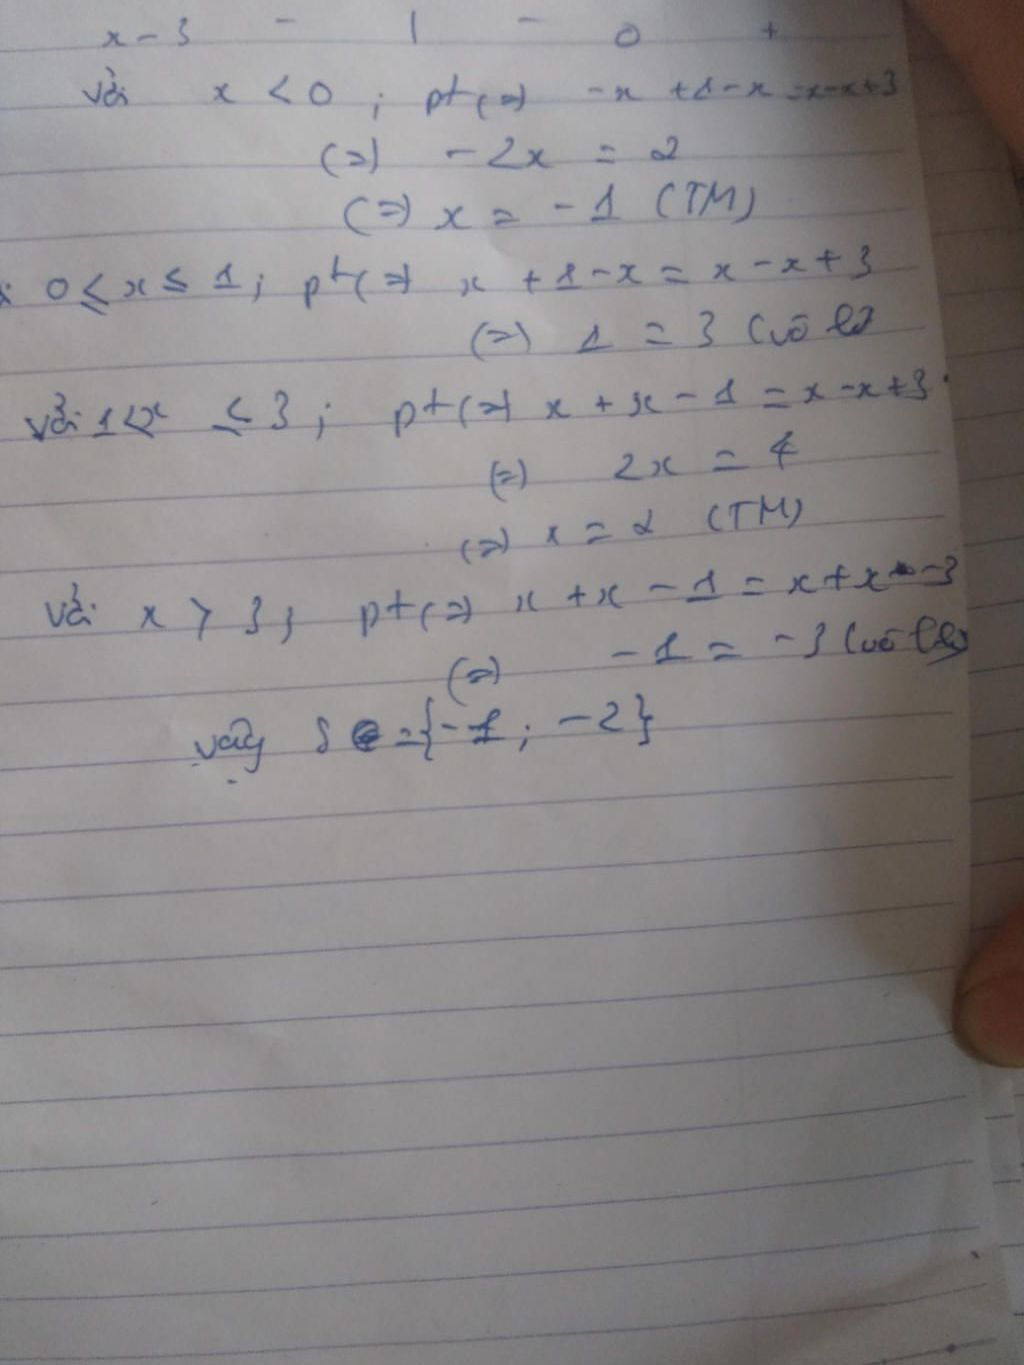 x - 3 - | - 0 +
Với x < 0 ; pt (=) -x + 1 - x = x - x + 3
(=) -2x = 2
(=) x = -1 (TM)
0 ≤ x ≤ 1 ; pt (=) x + 1 - x = x - x + 3
(=) 1 = 3 (vô lí)
Với 1 < x ≤ 3 ; pt (=) x + x - 1 = x - x + 3
(=) 2x = 4
(=) x = 2 (TM)
Với x > 3 ; pt (=) x + x - 1 = x + x - 3
(=) -1 = -3 (vô lí)
Vậy S = {-1 ; -2}